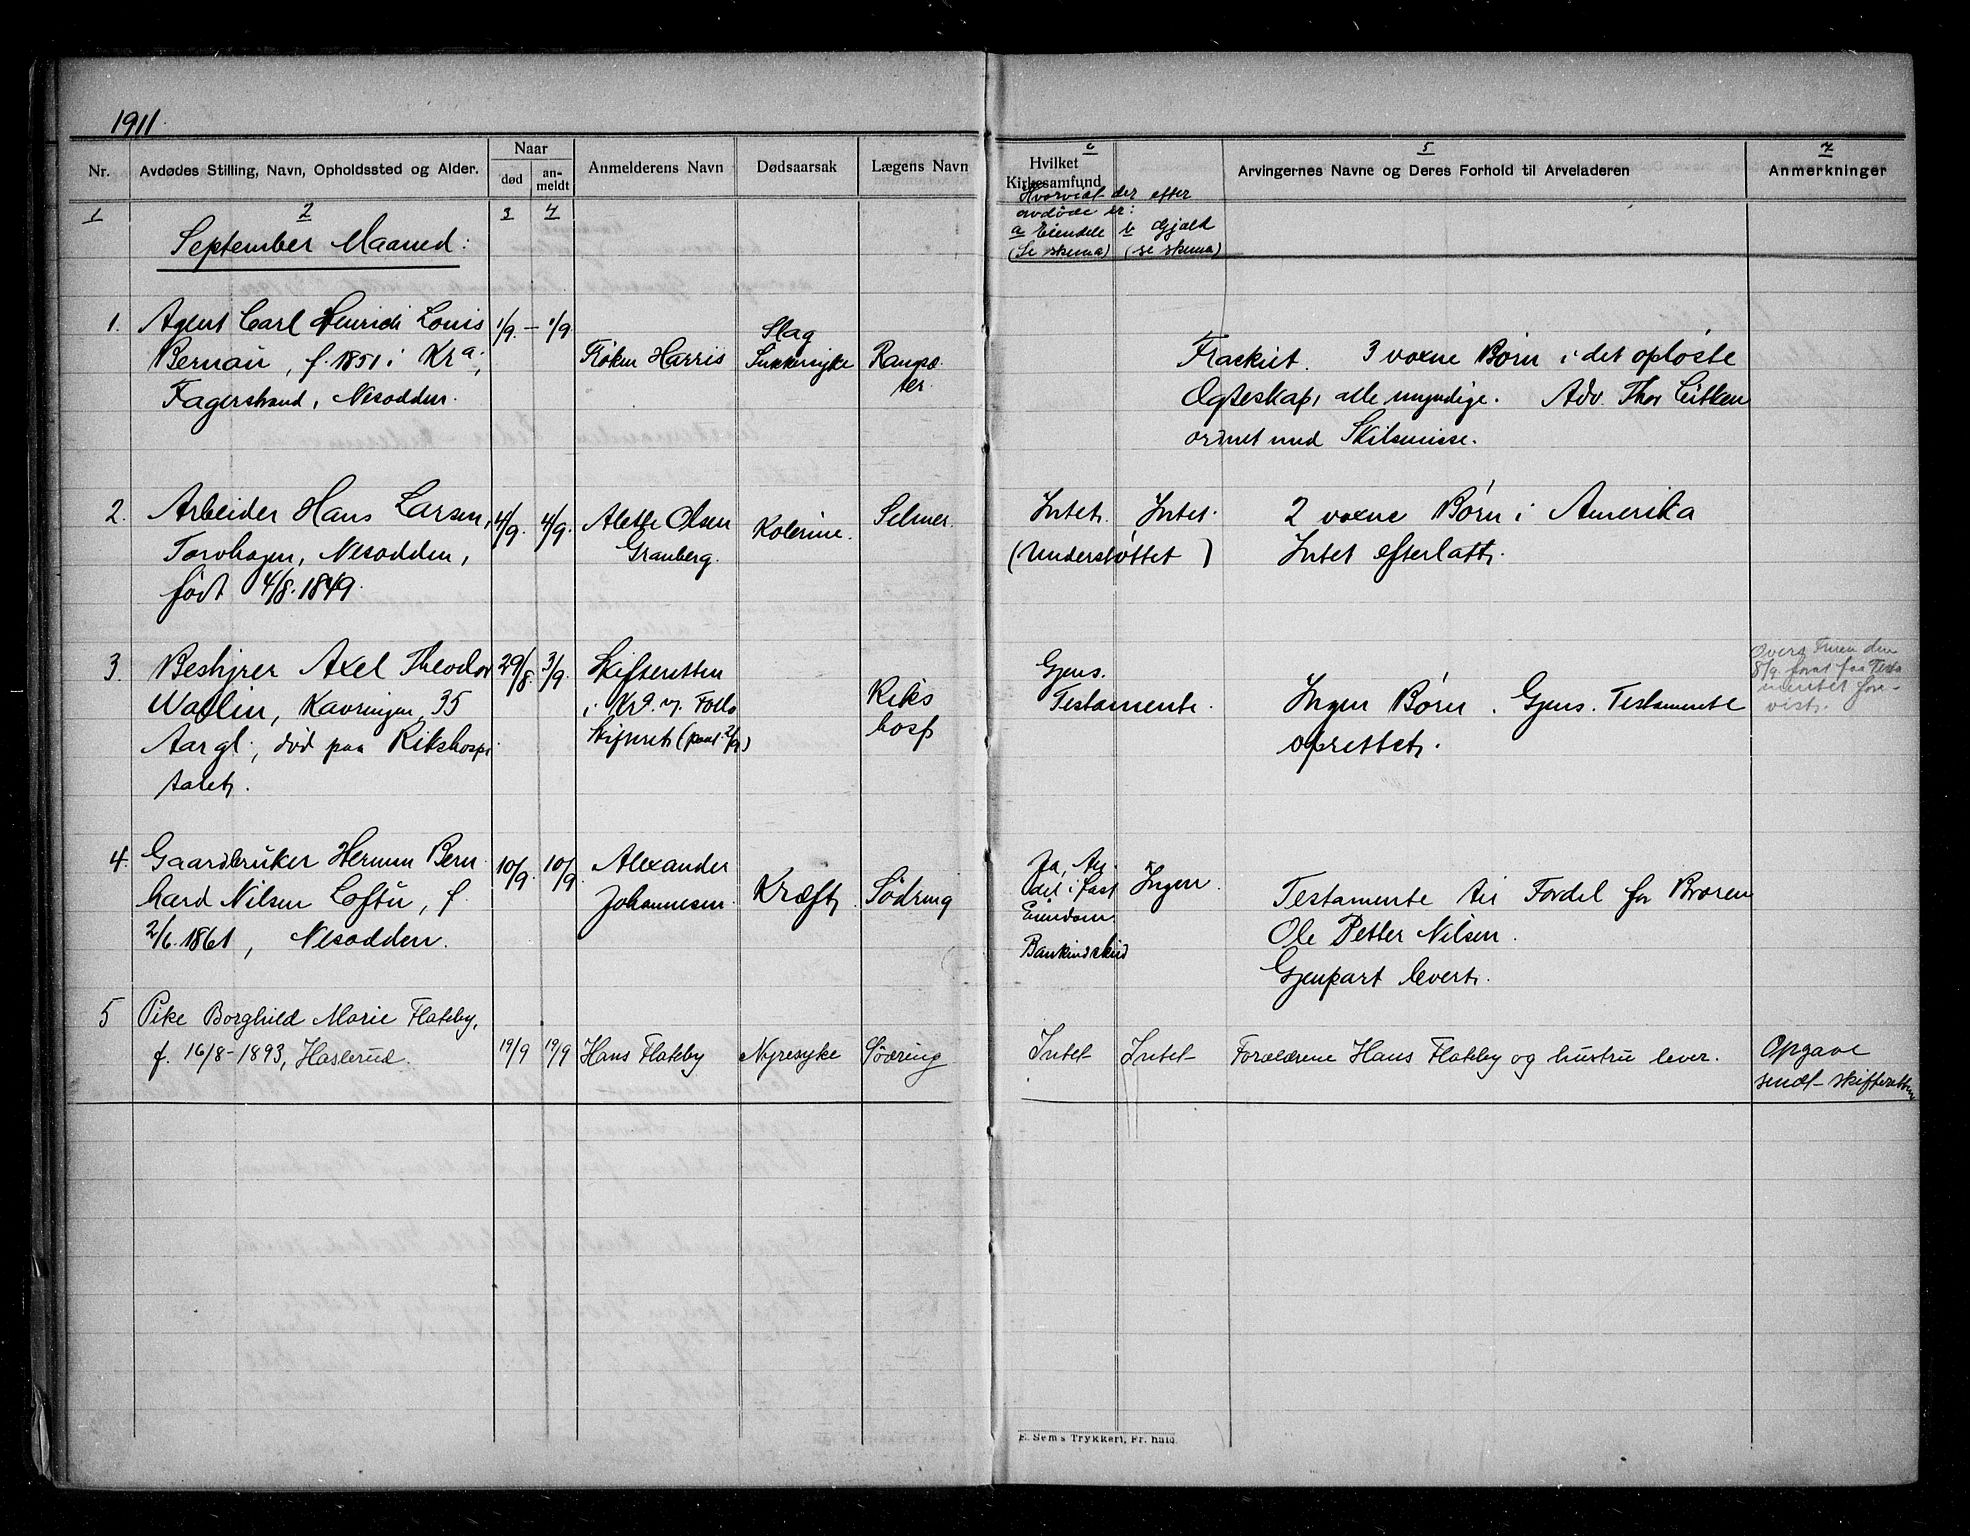 1911.
Nr. Avdødes Stilling, Navn, Opholdssted og Alder. Naar død an-meldt Anmelderens Navn Dødsaarsak Lægens Navn
Hvilket Kirkesamfund Arvingernes Navne og Deres Forhold til Arveladeren Anmerkninger
1 2 3 4 6 5 7
Hvorvidt der efter
avdøde er:
a Eiendele b Gjæld
(Se skema) (se skema)
September Maaned:
1. Agent Carl Heinrich Louis 1/9. – 1/9. Slag
Bernau, f. 1851 i Kra., Frøken Harris Sukkersyke
Fagerstrand, Nesodden.
Fraskilt. 3 voxne Børn i det opløste
Ægteskap, alle myndige. Adv. Thor Lütken
ordnet med Skilsmisse.
2. Arbeider Hans Larsen, 4/9. 4/9. Alette Olsen Kolerine. Selmer.
Torvhagen, Nesodden, Granberg.
født 4/8. 1849.
Intet. Intet. 2 voxne Børn i Amerika
(Understøttet) Intet efterlatt.
3. Bestyrer Axel Theodor 29/8. 3/9. Skifteretten
Wallin, Kavringen, 35 i Kra. Follo Riks
Aar gl., død paa Rikshospi hosp
talet. Skifteret
Gjens.
Testamente. Ingen Børn. Gjens. Testamente
oprettet.
8/9 Testa
mentet fore-
vist.
4. Gaardbruker Herman Bern 10/9. 10/9. Alexander
hard Nilsen Loftu, f. Johannesen Kræft. Södring
2/6. 1861, Nesodden.
Ja, An-
del i fast Ingen.
Eiendom
Bankindskud
Testamente til Fordel for Broren
Ole Petter Nilsen.
Gjenpart levert.
5 Pike Borghild Marie Flateby,
f. 16/8-1893, Haslerud. 19/9 19/9 Hans Flateby Nyresyke Södring
Intet Intet Forældrene Hans Flateby og hustru lever. Opgave
sendt skifteretten
E. Sem's Trykkeri, Fr. hald.